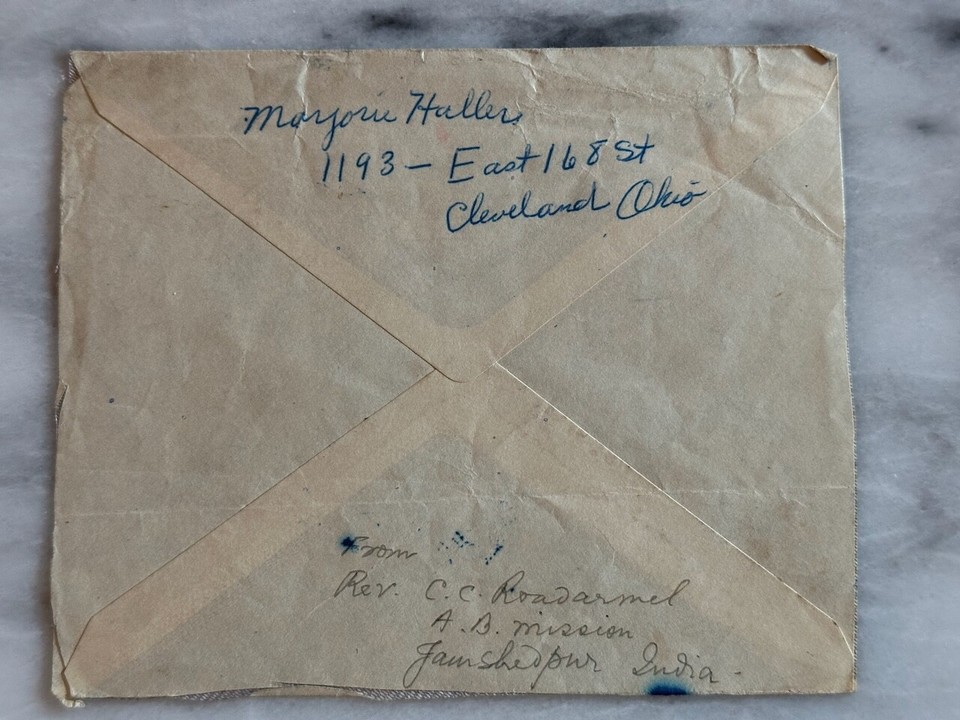 Marjorie Haller
1193 - East 168 St
Cleveland Ohio
From
Rev. C.C. Roadarmel
A.B. Mission
Jamshedpur India.